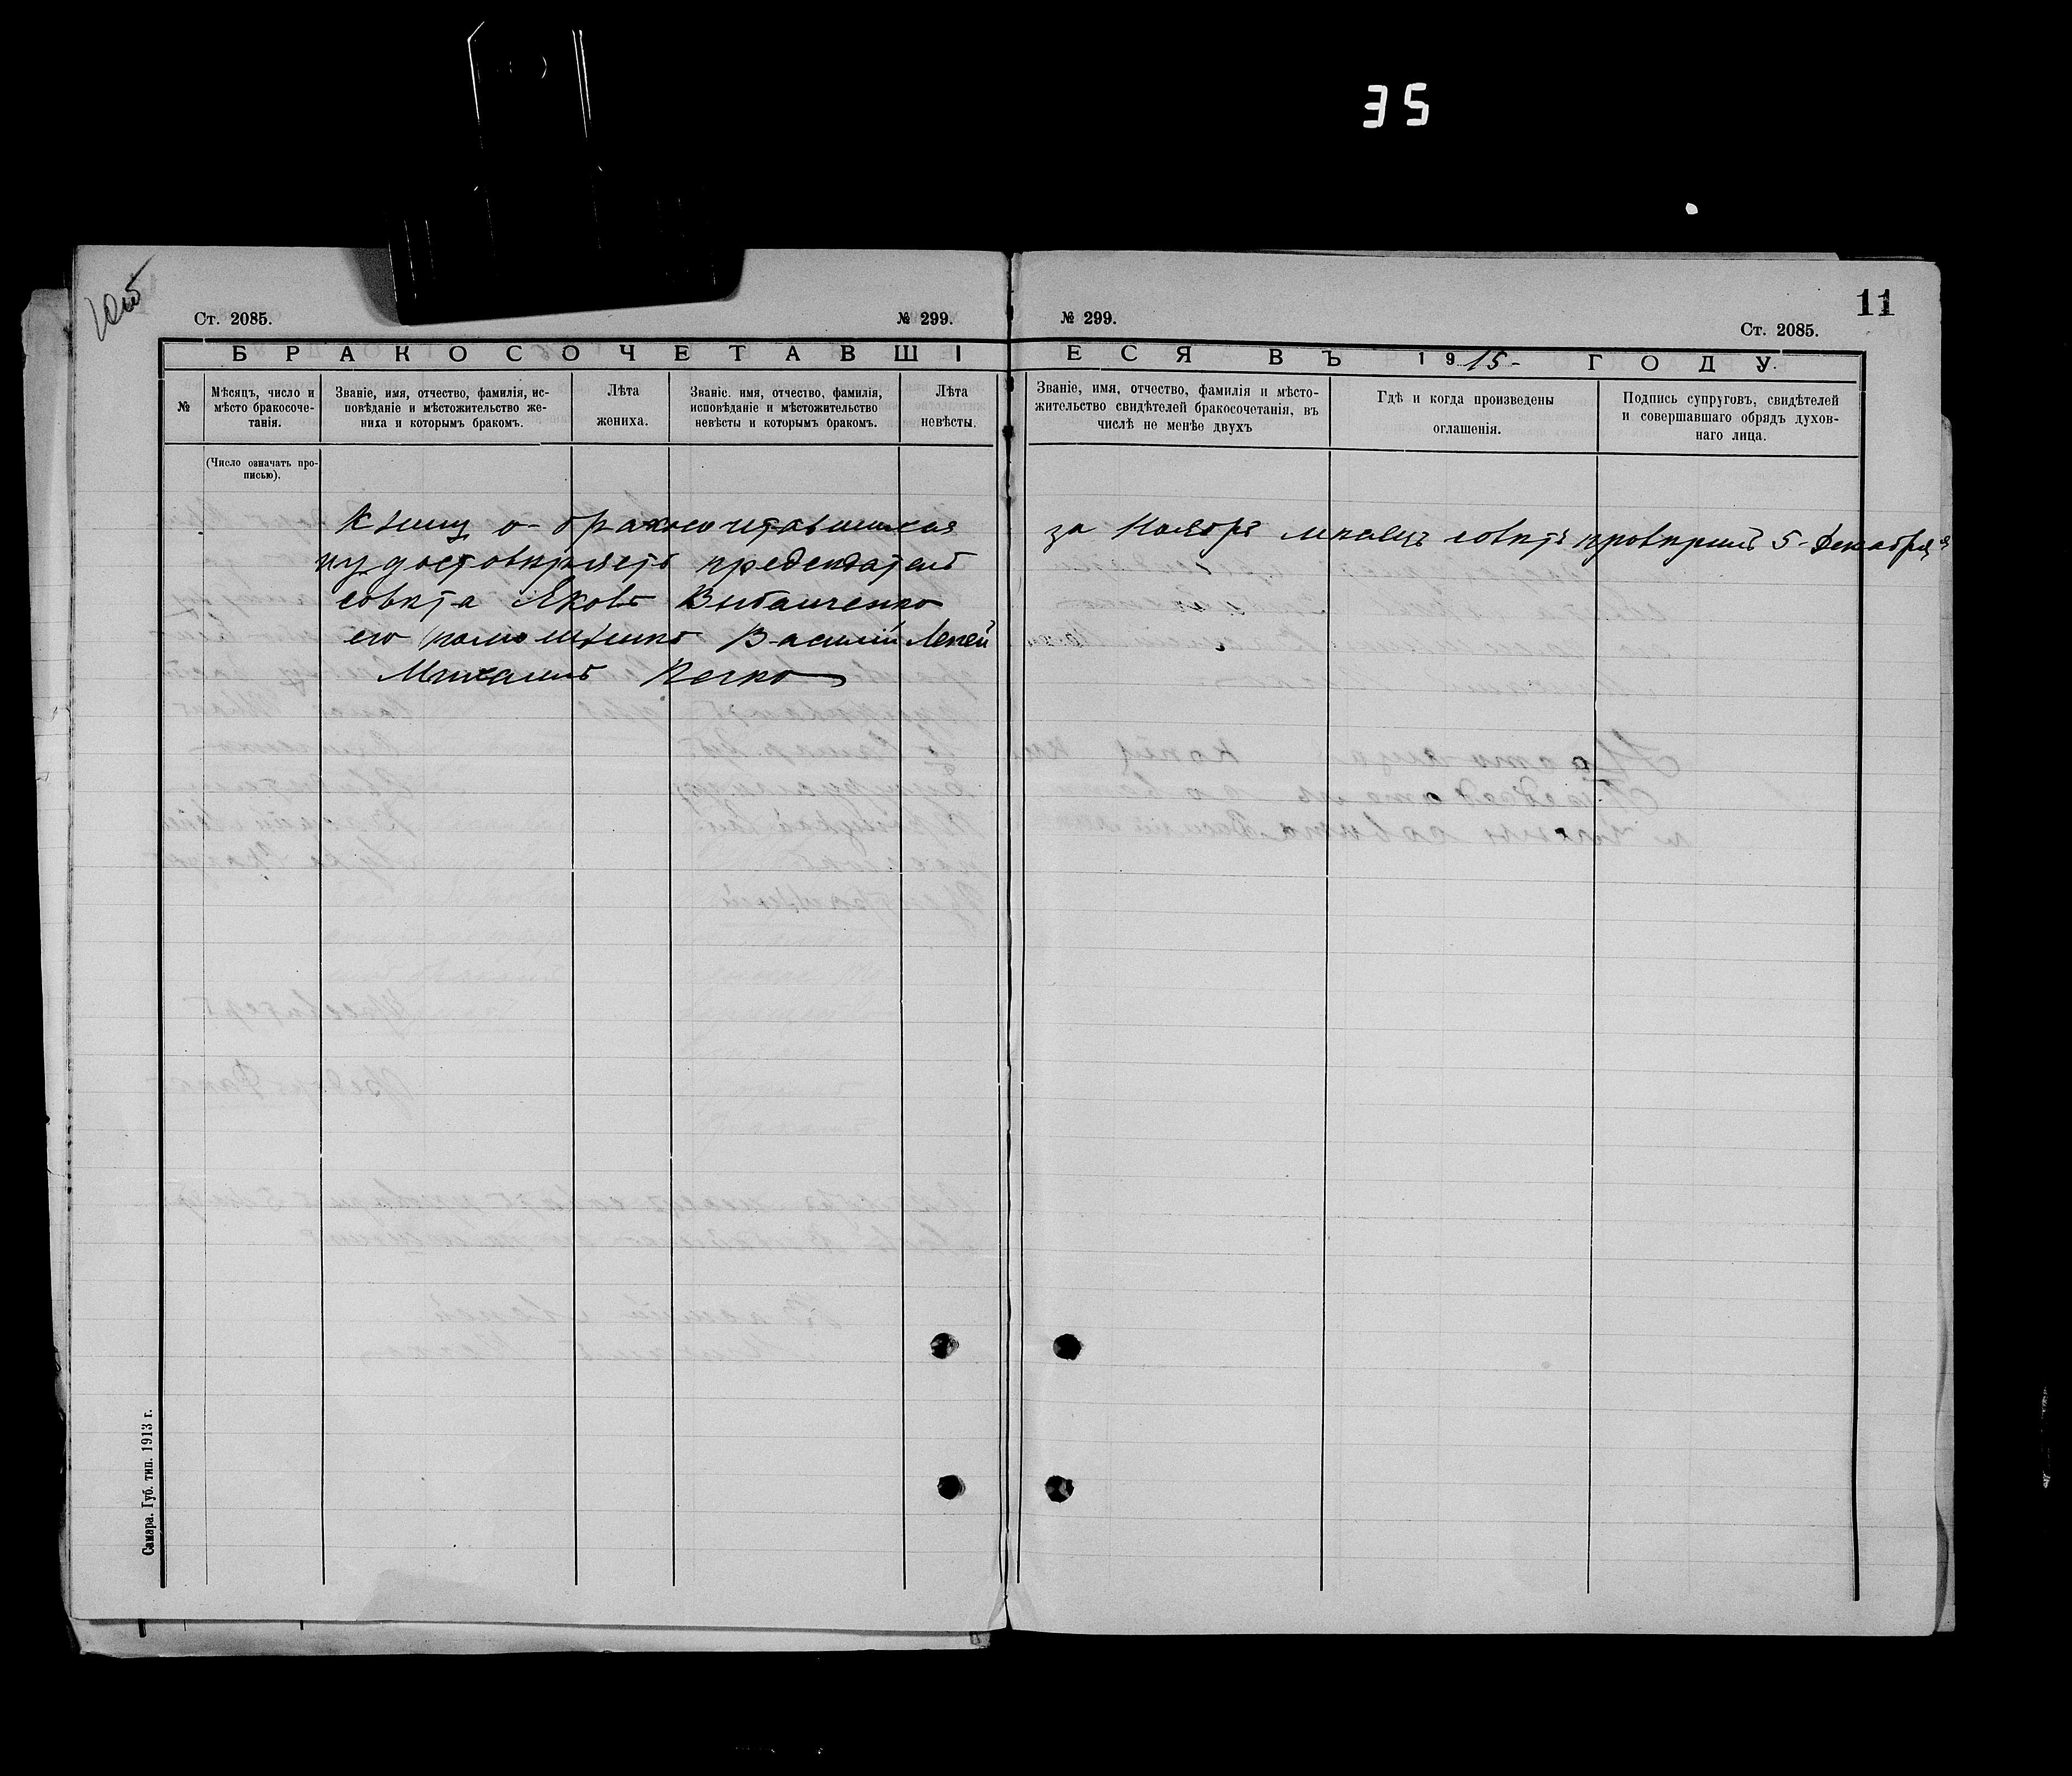 35
11
Ст. 2085.
№ 299.
№ 299.
Ст. 2085.
БРАКОСОЧЕТАВШІ
ЕСЯ ВЪ 1915- ГОДУ.
№
Мѣсяцъ, число и
мѣсто бракосоче-
танія.
(Число означать про-
писью).
Званіе, имя, отчество, фамилія, ис-
повѣданіе и мѣстожительство же-
ниха и которымъ бракомъ.
Лѣта
жениха.
Званіе. имя, отчество, фамилія,
исповѣданіе и мѣстожительство
невѣсты и которымъ бракомъ.
Лѣта
невѣсты.
Званіе, имя, отчество, фамилія и мѣсто-
жительство свидѣтелей бракосочетанія, въ
числѣ не менѣе двухъ
Гдѣ и когда произведены
оглашенія.
Подпись супруговъ, свидѣтелей
и совершавшаго обрядъ духов-
наго лица.
Книгу о- бракосочетавшихся за Ноябрь мѣсяцъ совѣтъ провѣрилъ 5- Декабря
предсѣдатель
совѣта Яковъ
его Василій Лепей